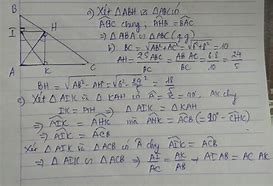 B
I
H
A
K
C
a) Xét △ABH và △ABC có
ABC chung ; AHB = BAC
⇒ △ABH ∽ △ABC (g.g)
b) BC = √AB² + AC² = √6² + 8² = 10
AH = 2S ABC / BC = AB.AC / BC = 6.8 / 10 = 24 / 5
BH = √AB² - AH² = √6² - = 18 / 5
c) Xét △AIK và △KAH có A = = 90°, AK chung
IK = AH ⇒ △AIK = △KAH
⇒ AIK = AHK mà AHK = ACB (= 90° - CHK)
⇒ AIK = ACB
Xét △AIK và △ACB có A chung AIK = ACB
⇒ △AIK ∽ △ACB ⇒ AI / AC = AK / AB ⇒ AI.AB = AC.AK